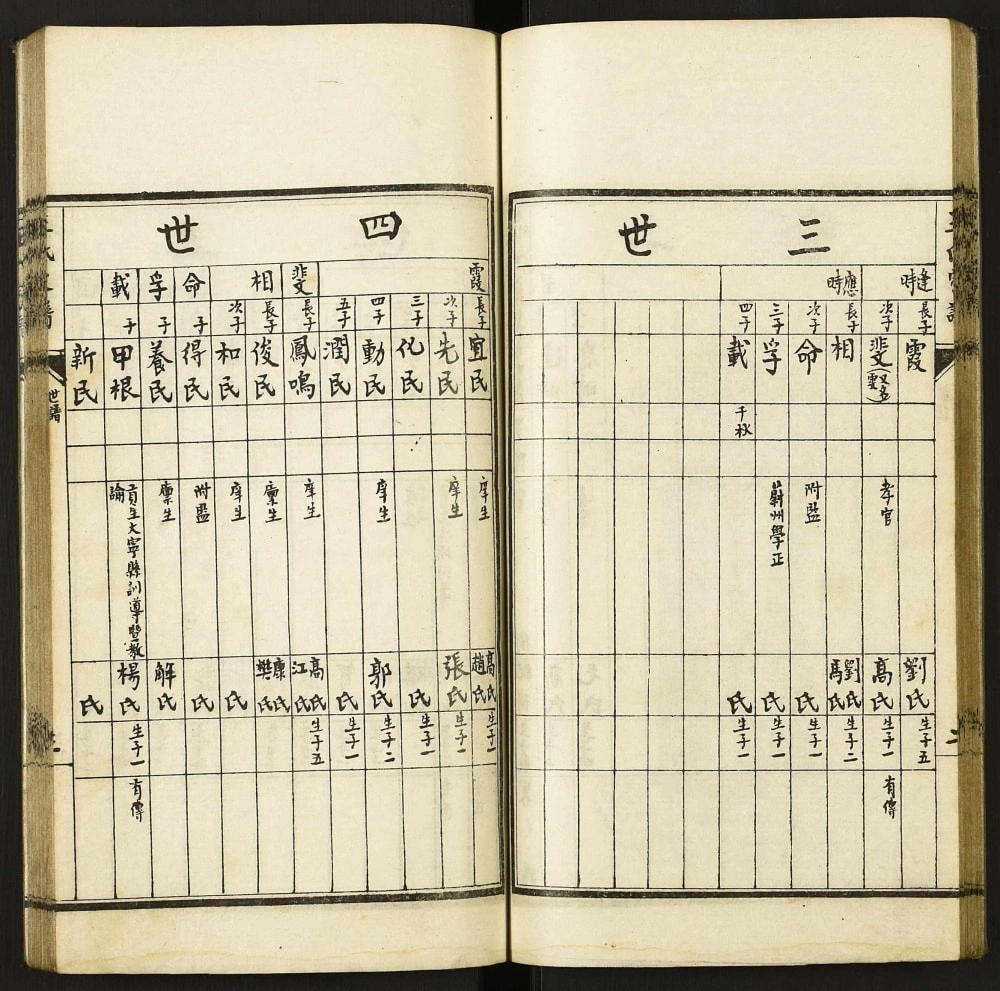 三世
逢時
長子
霞
劉氏
生子五
次子
孝官
高氏
生子一
有傳
應時
長子
相
劉氏
馬氏
生子二
次子
命
附監
氏
生子一
三子
孚
蔚州學正
氏
生子一
四子
載
千秋
氏
生子一
四世
霞
長子
宜民
庠生
高氏
趙氏
生子一
次子
先民
庠生
張氏
生子一
三子
化民
氏
生子一
四子
動民
庠生
郭氏
生子二
五子
潤民
氏
生子一
斐
長子
鳳鳴
庠生
高氏
江氏
生子五
相
長子
俊民
廩生
康氏
樊氏
次子
和民
庠生
氏
命
子
得民
附監
氏
孚
子
養民
廩生
解氏
載
子
甲根
貢生大寧縣訓導暨教諭
楊氏
生子一
有傳
新民
氏
世譜